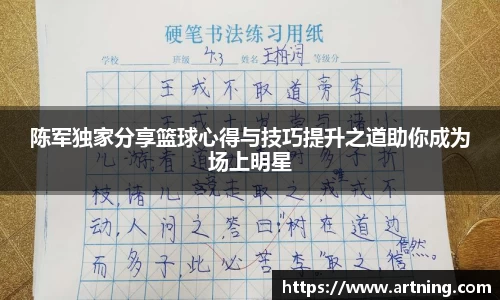 硬笔书法练习用纸
学校 班级 4.3 姓名 王柏润 等级分
王戎不取道旁李
陈军独家分享篮球心得与技巧提升之道助你成为
场上明星
儿游.看道 多子折
枝,诸儿竞走取之,戎唯不
动,人问之,答曰:"树在道边
而多子,此必苦李"取之,信然。
https://www.artning.com